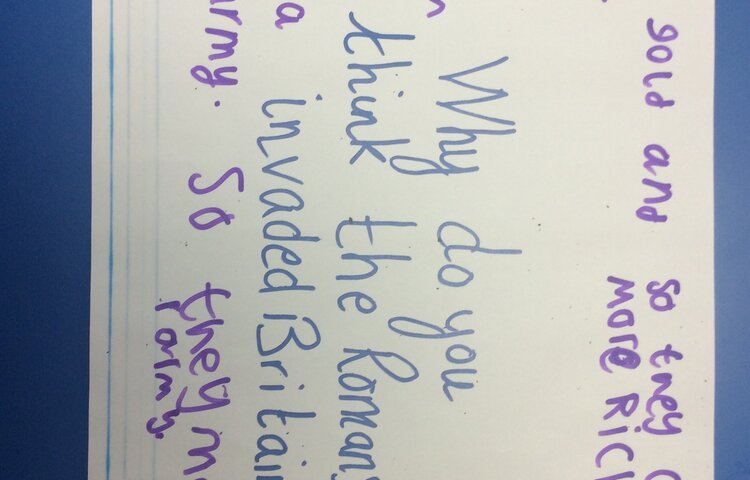 gold and so they
more Rich
Why do you
think the Romans
invaded Britain
a
army. So they
army.